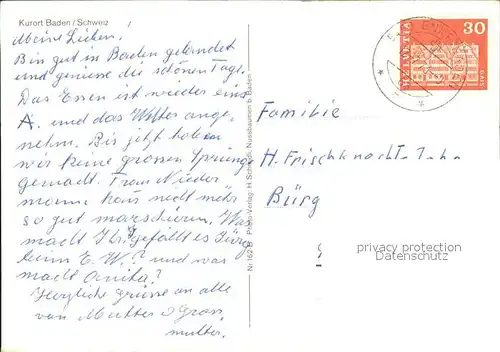 Kurort Baden / Schweiz
Meine Lieben.
Bin gut in Baden gelandet
und geniesse die schönen Tage.
Das Essen ist wieder eins
A. und das Wetter ange-
nehm. Bis jetzt haben
wir keine grossen Sprünge
gemacht. Frau Nieder
mann kann nicht mehr
so gut marschieren. Was
macht Ihr? gefällt es Jürg
beim E. W.? und was
macht Anita?
Herzliche Grüsse an alle
von Mutter u Gross
mutter.
Nr. 162 B Photo-Verlag: H. Schmid, Nussbaumen b. Baden
HELVETIA
30
Familie
H. Frischknecht
Bürg
9
privacy protection
Datenschutz